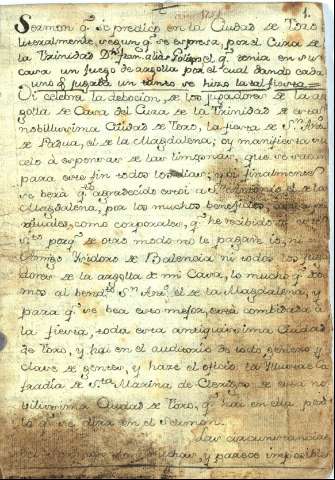 1.
Sermon q.e se predicó en la Ciudad de Toro
literalmente, segun q.e se expresa, por el Cura de
la Trinidad D.n Fran.co alias q.e tenia en su
casa un juego de argolla por el cual dando cada
uno q.e jugaba un tanto se hizo la tal fiesta =
Oi celebra la debocion, de los jugadores de la ar
golla de Casa del Cura de la Trinidad de esta
nobilissima Ciudad de Toro, la fiesta de S.n Anto
de Padua, el de la Magdalena; oy manifiesta su
celo á expensas de las limosnas, que se
para este fin todos los dias; y finalmente
se berá q.e agradecido estoi á S.n Antonio el de la
Magdalena, por los muchos beneficios, asi espi
rituales, como corporales, q.e he recibido de
porq.e de otro modo no le pagare io, ni
Domingo Isidoro de Palencia ni todos los juga
dores de la argolla de mi Casa, lo mucho q.e
mos al bend.to S.n Ant.o el de la Magdalena, y
para q.e se bea esto mejor, está combidada á
la fiesta, toda esta antiquissima Ciudad
de Toro, y hai en el auditorio de todo genero, y
clase de gentes, y haze el oficio la Illustre
de S.ta Marina de Clerigos de esta no
vilissima Ciudad de Toro, q.e hai en ella
lo q.e se dira en el Sermon.
Las circunstancias
son muchas, y parece imposible